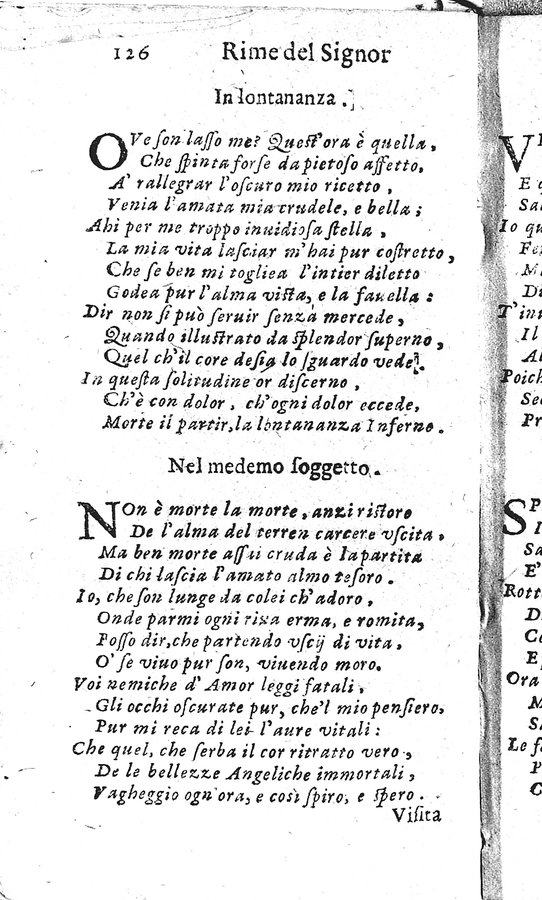 126 Rime del Signor
In lontananza.
OVe ſon laſſo me? Queſt'ora è quella,
Che ſpinta forſe da pietoſo affetto,
A' rallegrar l'oſcuro mio ricetto,
Venia l'amata mia crudele, e bella;
Ahi per me troppo inuidioſa ſtella,
La mia vita laſciar m'hai pur coſtretto,
Che ſe ben mi togliea l'intier diletto
Godea pur l'alma viſta, e la fauella:
Dir non ſi può ſeruir ſenza mercede,
Quando illuſtrato da ſplendor ſuperno,
Quel ch'il core deſia lo ſguardo vede.
In queſta ſolitudine or diſcerno,
Ch'è con dolor, ch'ogni dolor eccede,
Morte il partir, la lontananza Inferno.
Nel medemo ſoggetto.
NOn è morte la morte, anzi riſtoro
De l'alma del terren carcere vſcita,
Ma ben morte aſſai cruda è la partita
Di chi laſcia l'amato almo teſoro.
Io, che ſon lunge da colei ch'adoro,
Onde parmi ogni riua erma, e romita,
Poſſo dir, che partendo vſcij di vita,
O' ſe viuo pur ſon, viuendo moro.
Voi nemiche d'Amor leggi fatali,
Gli occhi oſcurate pur, che'l mio penſiero,
Pur mi reca di lei l'aure vitali:
Che quel, che ſerba il cor ritratto vero,
De le bellezze Angeliche immortali,
Vagheggio ogn'ora, e così ſpiro, e ſpero.
Viſita